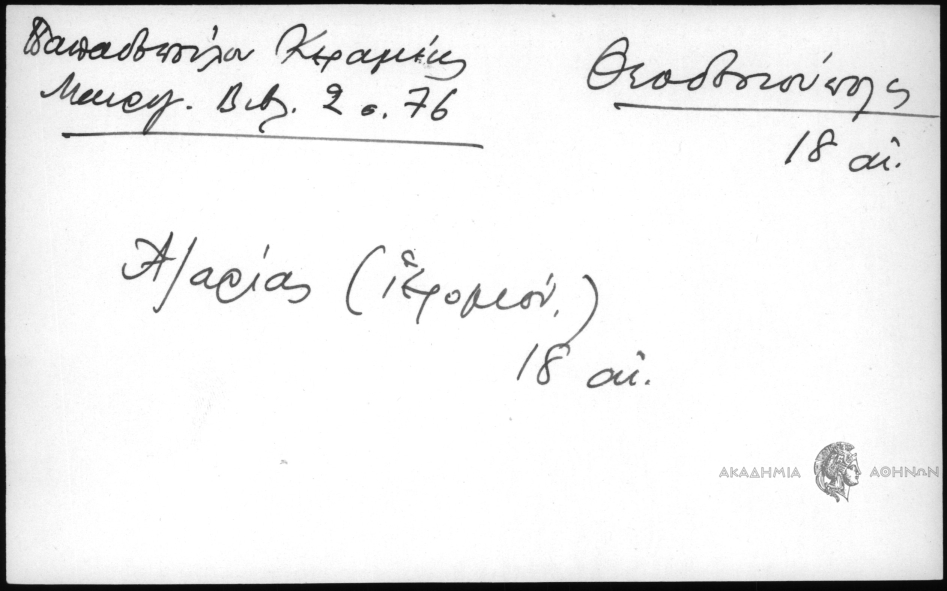 Παπαδοπούλου Κεραμέως
Μαυρογ. Βιβ. 2 σ. 76
Θεοδοσιούπολις
18 αι.
Ἀζαρίας (ἱερομον.)
18 αι.
ΑΚΑΔΗΜΙΑ ΑΘΗΝΩΝ